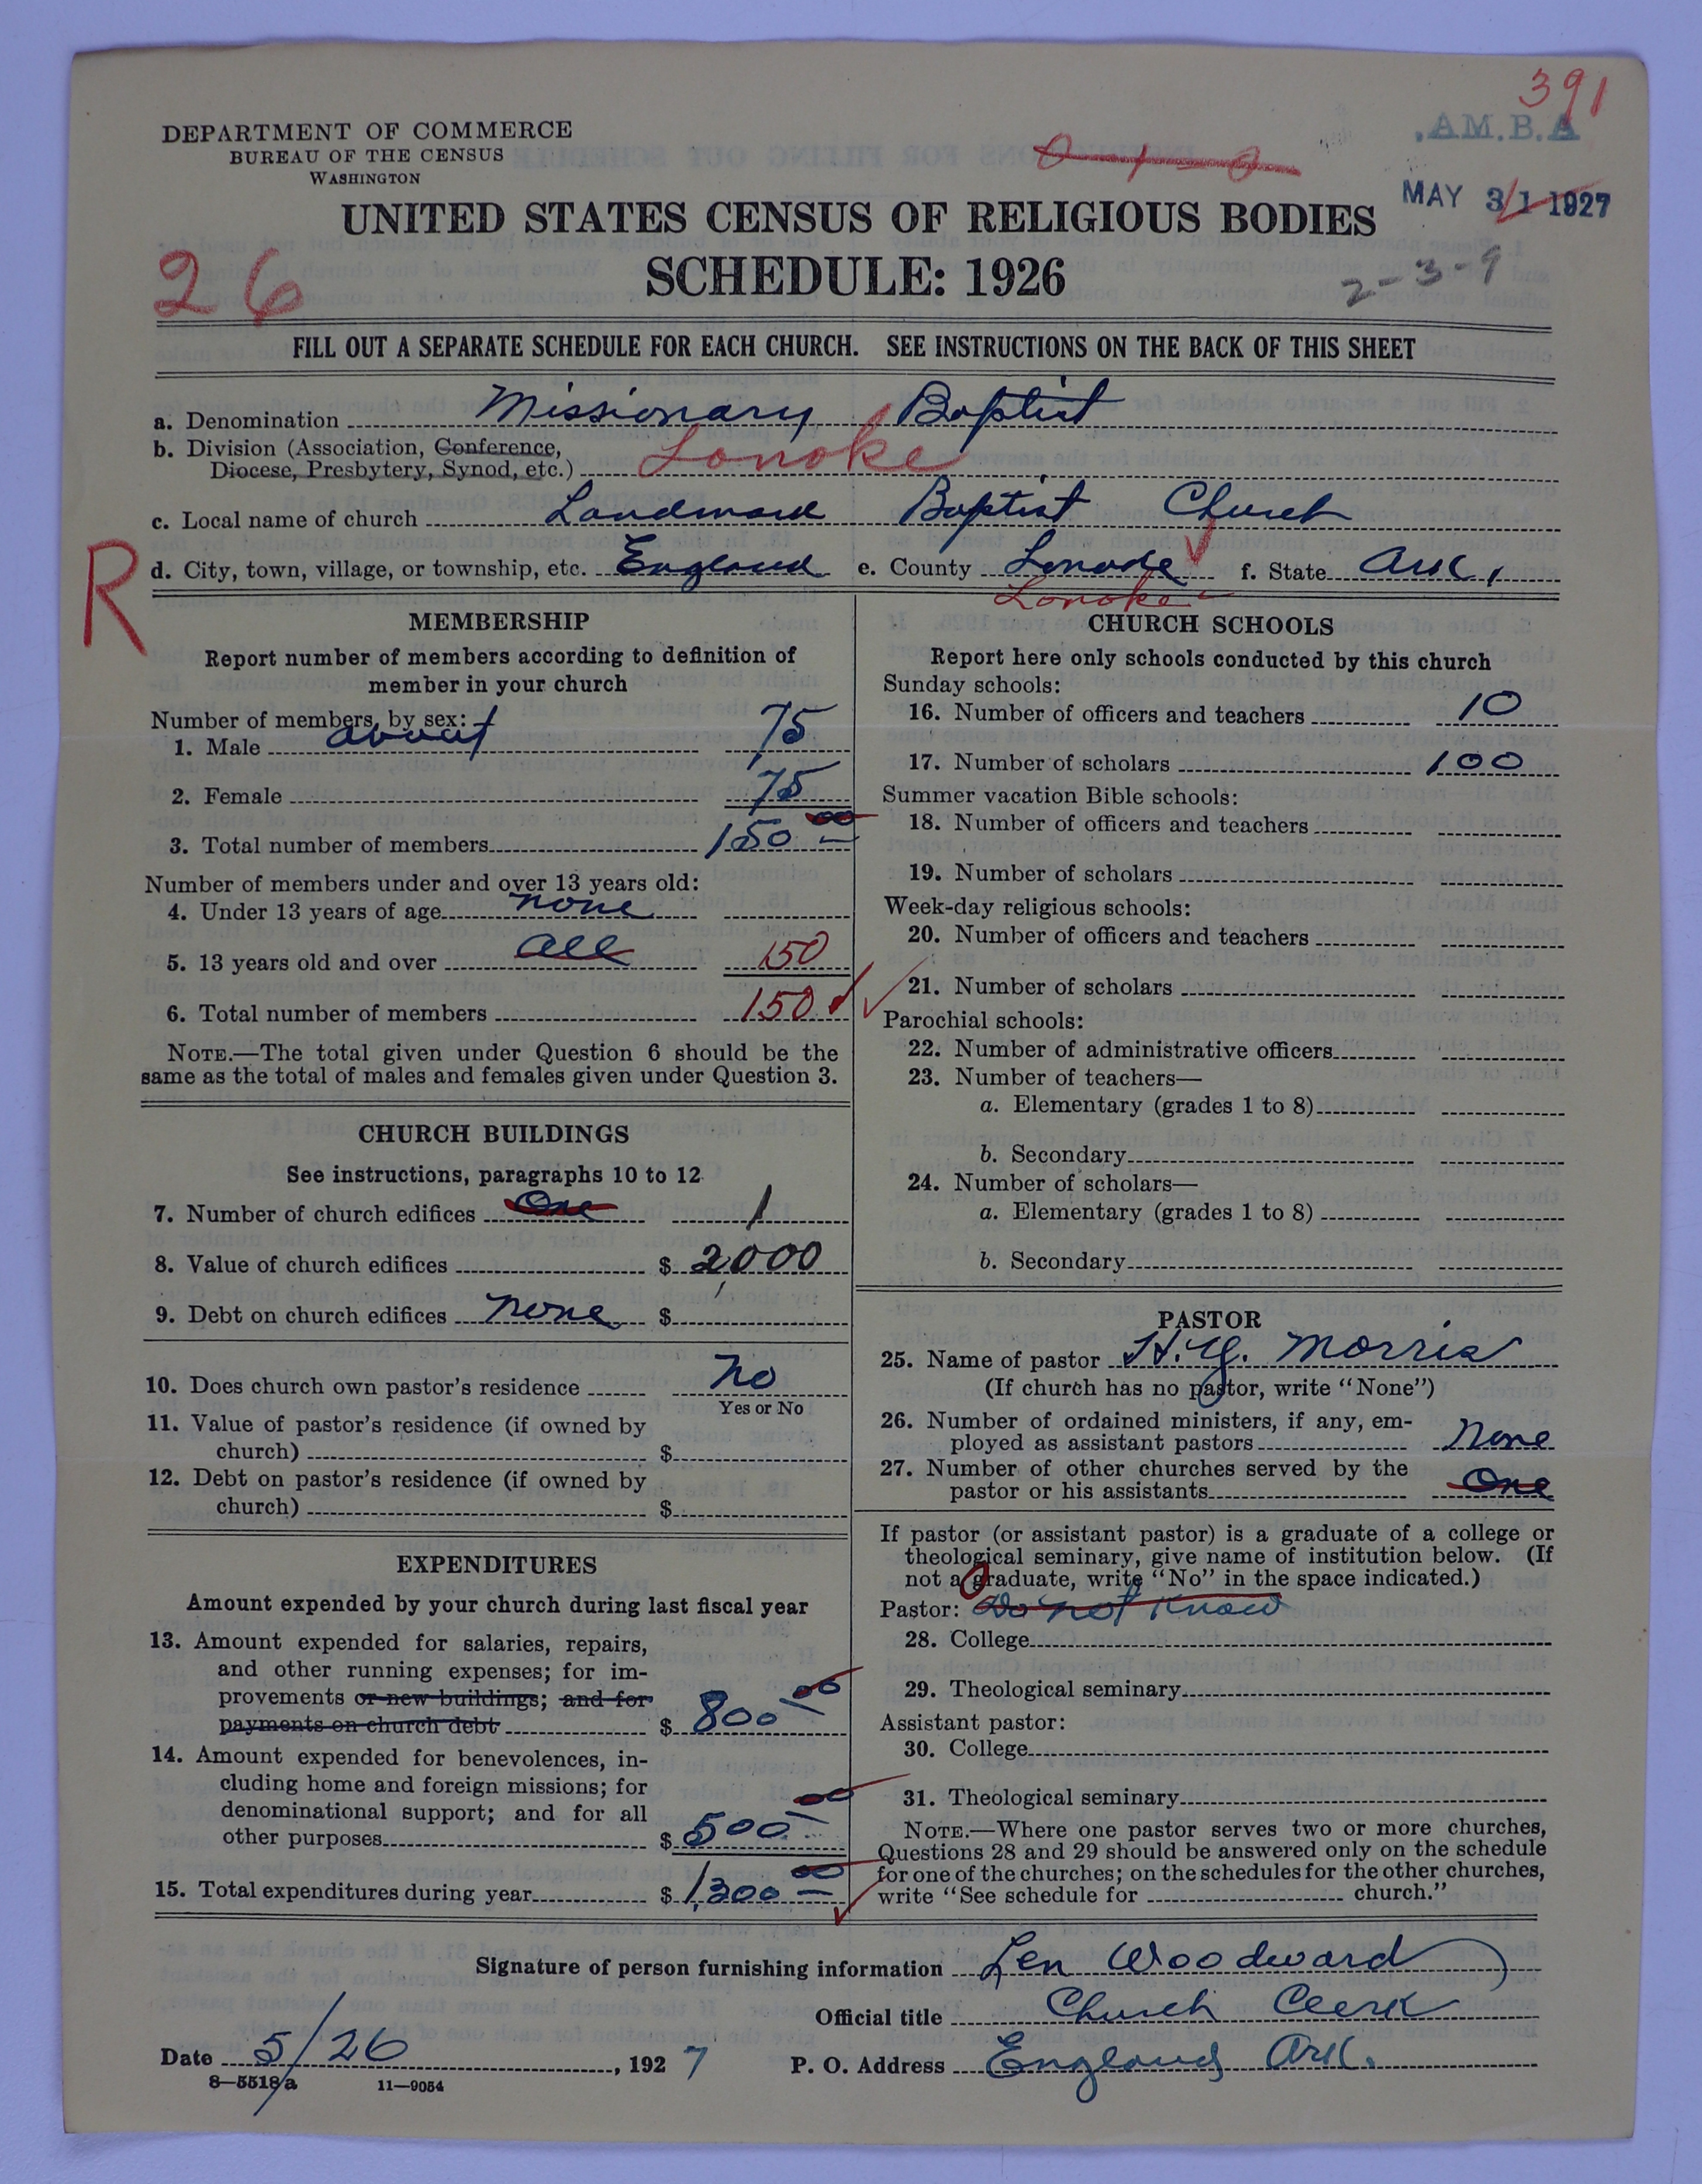 391
DEPARTMENT OF COMMERCE
BUREAU OF THE CENSUS
WASHINGTON
.AM.B.A
MAY 31 1927
UNITED STATES CENSUS OF RELIGIOUS BODIES
SCHEDULE: 1926
2-3-9
26
FILL OUT A SEPARATE SCHEDULE FOR EACH CHURCH. SEE INSTRUCTIONS ON THE BACK OF THIS SHEET
a. Denomination Missionary Baptist
b. Division (Association, Conference,
Diocese, Presbytery, Synod, etc.) Lonoke
c. Local name of church Landmark Baptist Church
R
d. City, town, village, or township, etc. England e. County Lonoke f. State Ark.
Lonoke
MEMBERSHIP
Report number of members according to definition of
member in your church
Number of members, by sex:
1. Male about 75
2. Female 75
3. Total number of members 150 00
Number of members under and over 13 years old:
4. Under 13 years of age none
5. 13 years old and over all 150
6. Total number of members 150
NOTE.—The total given under Question 6 should be the
same as the total of males and females given under Question 3.
CHURCH BUILDINGS
See instructions, paragraphs 10 to 12
7. Number of church edifices One 1
8. Value of church edifices $ 2,000
9. Debt on church edifices none $
10. Does church own pastor's residence no
Yes or No
11. Value of pastor's residence (if owned by
church) $
12. Debt on pastor's residence (if owned by
church) $
EXPENDITURES
Amount expended by your church during last fiscal year
13. Amount expended for salaries, repairs,
and other running expenses; for im-
provements or new buildings; and for
payments on church debt $ 800 00
14. Amount expended for benevolences, in-
cluding home and foreign missions; for
denominational support; and for all
other purposes $ 500 00
15. Total expenditures during year $ 1,300 00
CHURCH SCHOOLS
Report here only schools conducted by this church
Sunday schools:
16. Number of officers and teachers 10
17. Number of scholars 100
Summer vacation Bible schools:
18. Number of officers and teachers
19. Number of scholars
Week-day religious schools:
20. Number of officers and teachers
21. Number of scholars
Parochial schools:
22. Number of administrative officers
23. Number of teachers—
a. Elementary (grades 1 to 8)
b. Secondary
24. Number of scholars—
a. Elementary (grades 1 to 8)
b. Secondary
PASTOR
25. Name of pastor H.Y. Morris
(If church has no pastor, write "None")
26. Number of ordained ministers, if any, em-
ployed as assistant pastors None
27. Number of other churches served by the
pastor or his assistants One
If pastor (or assistant pastor) is a graduate of a college or
theological seminary, give name of institution below. (If
not a graduate, write "No" in the space indicated.)
Pastor: Do not know
28. College
29. Theological seminary
Assistant pastor:
30. College
31. Theological seminary
NOTE.—Where one pastor serves two or more churches,
Questions 28 and 29 should be answered only on the schedule
for one of the churches; on the schedules for the other churches,
write "See schedule for church."
Signature of person furnishing information Len Woodward
Official title Church Clerk
Date 5/26, 1927 P. O. Address England Ark.
8—5518a 11—9054